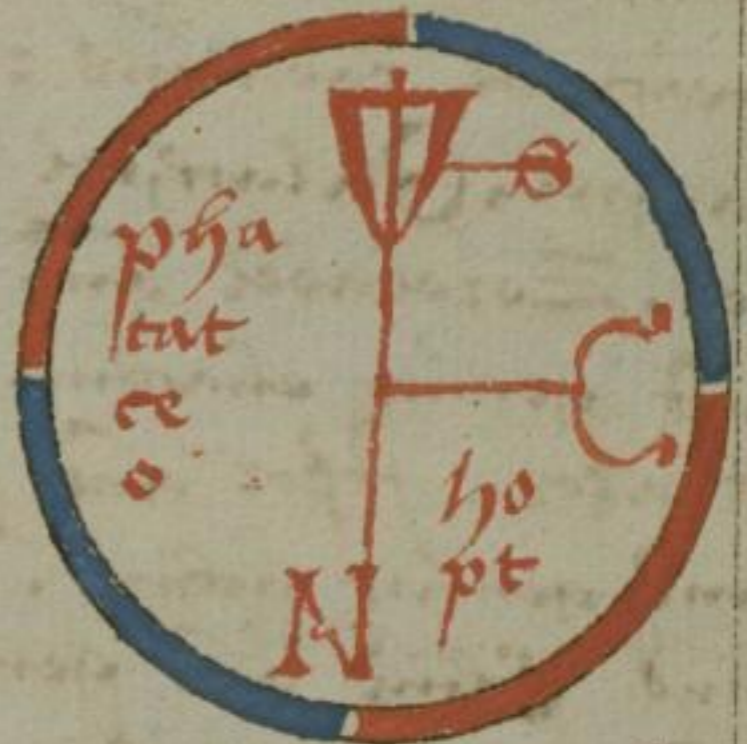 S
pha
tat
ce
o
C
ho
pt
N